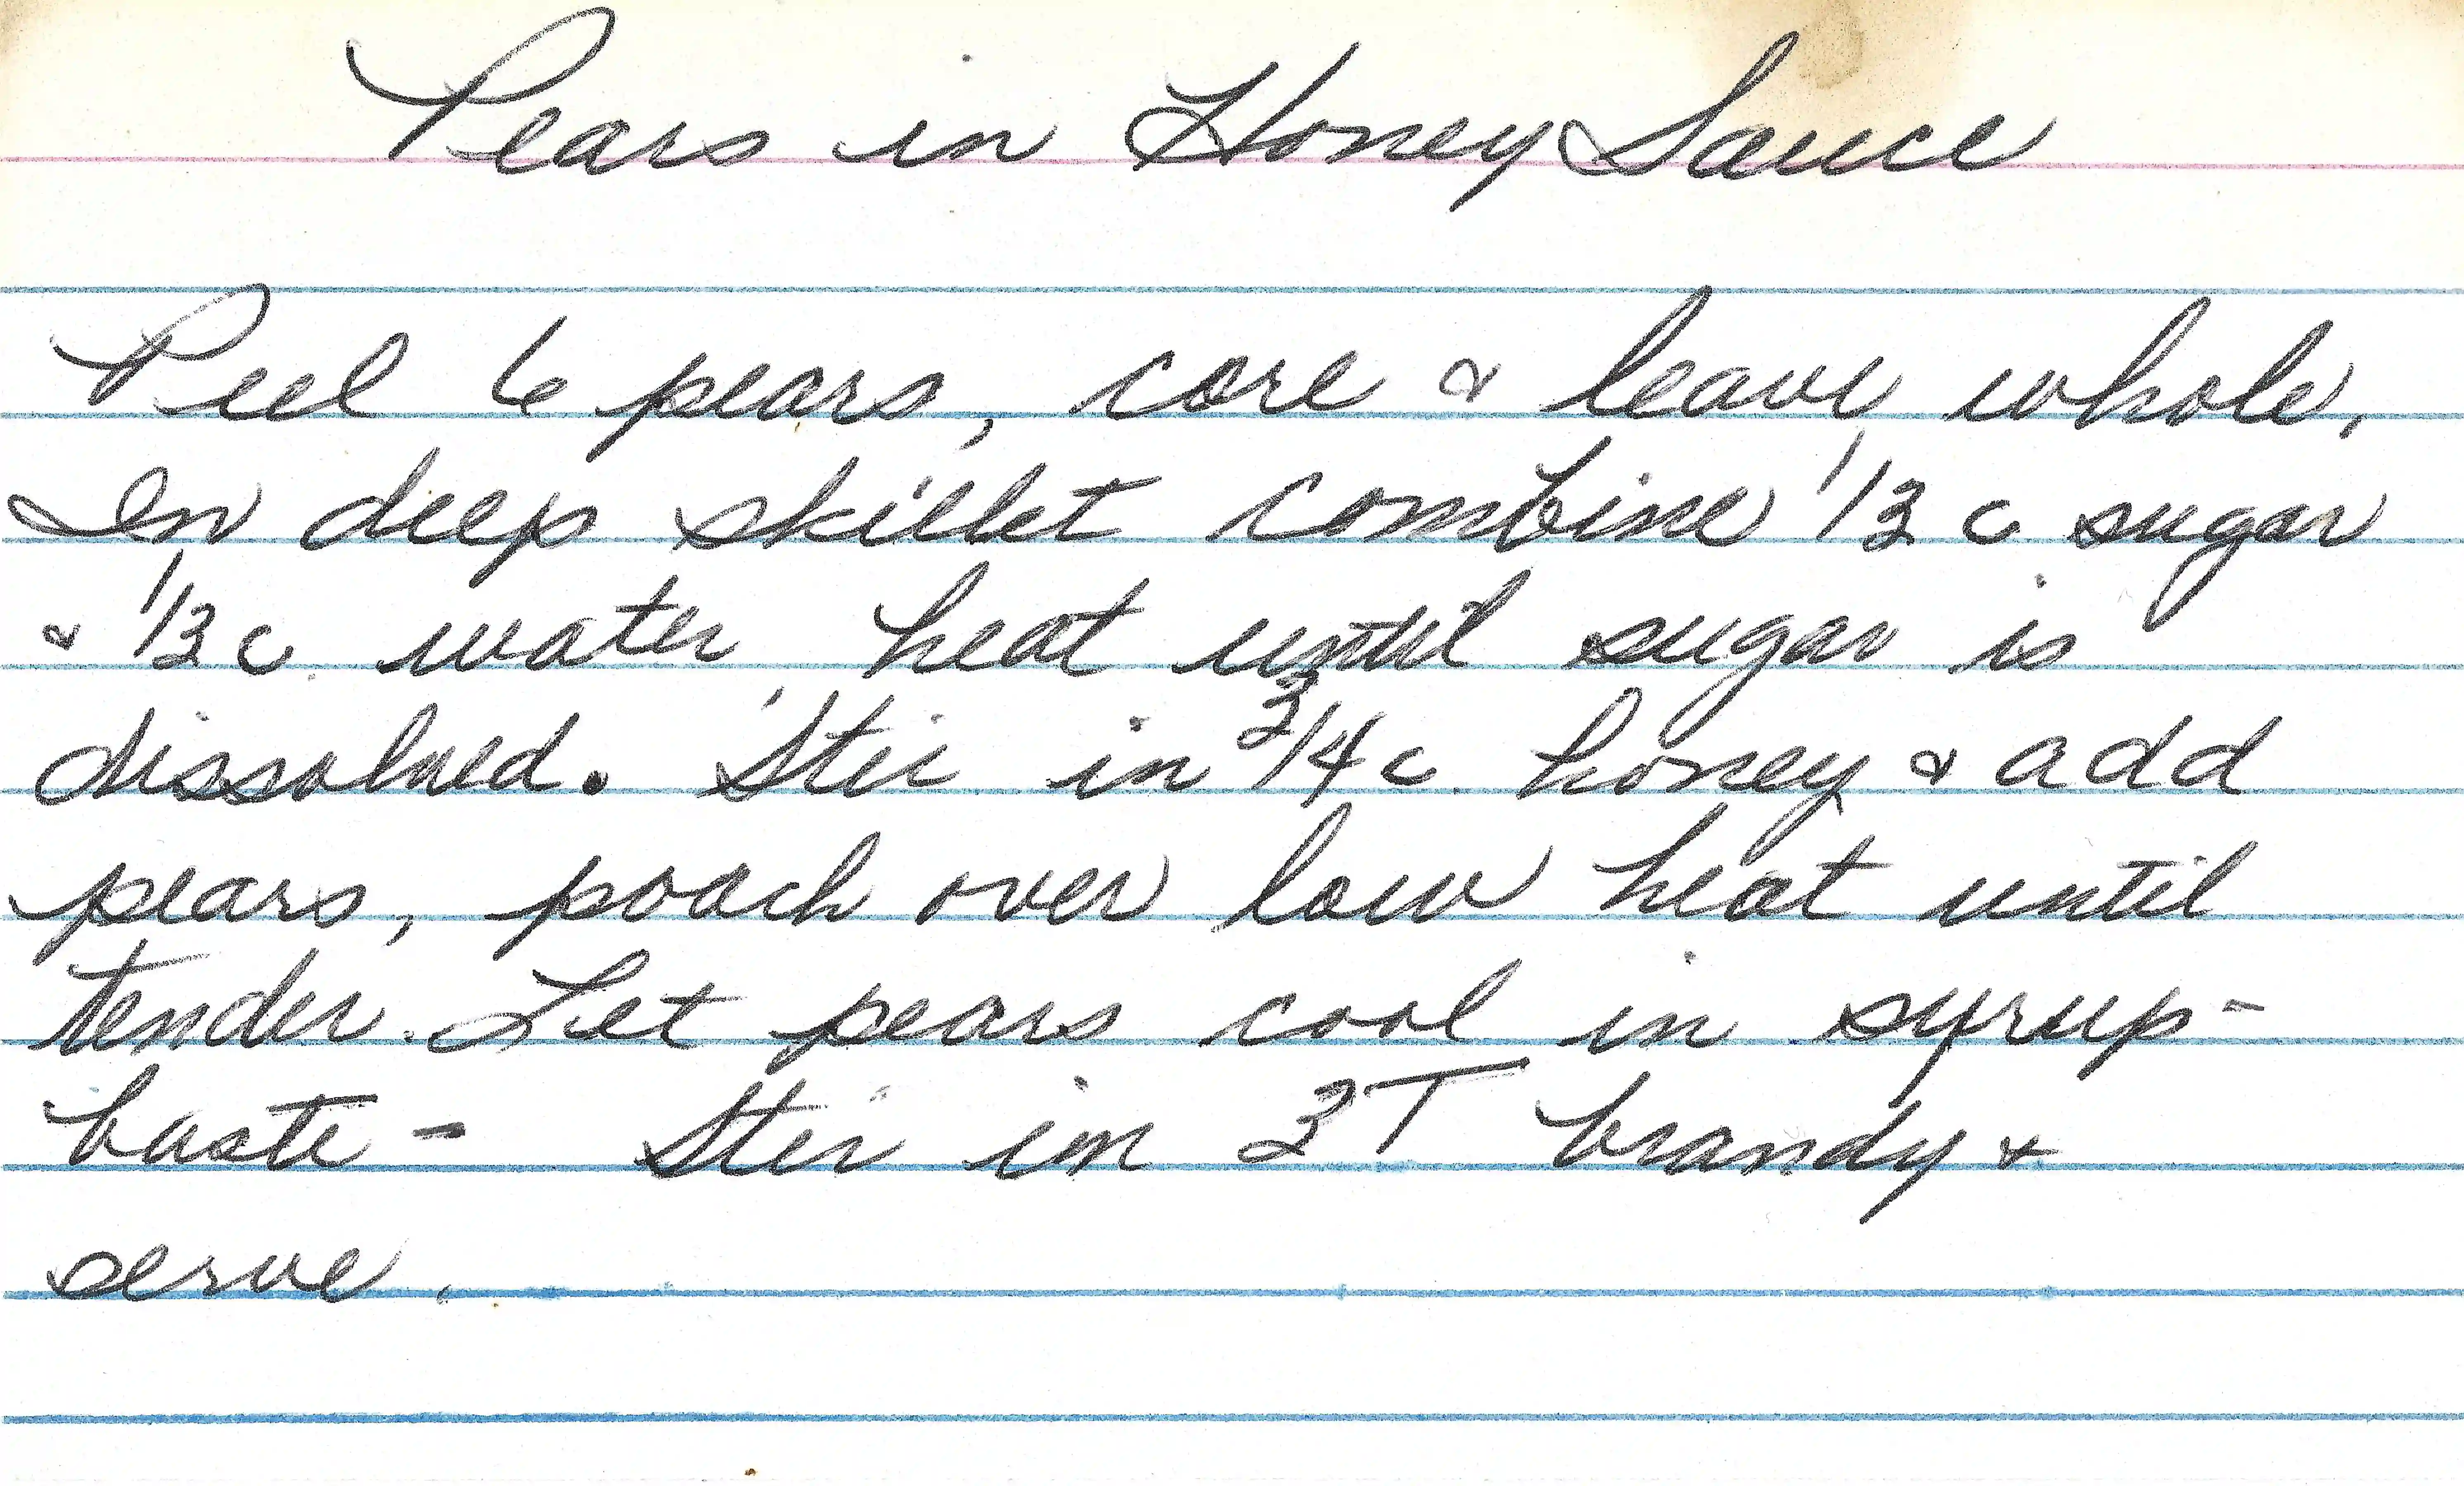 Pears in Honey Sauce
Peel 6 pears, core & leave whole.
In deep skillet combine 1/3 c sugar
& 1/3 c. water, heat until sugar is
dissolved. Stir in 3/4 c. honey & add
pears, poach over low heat until
tender. Let pears cool in syrup-
baste - Stir in 3T brandy &
serve.